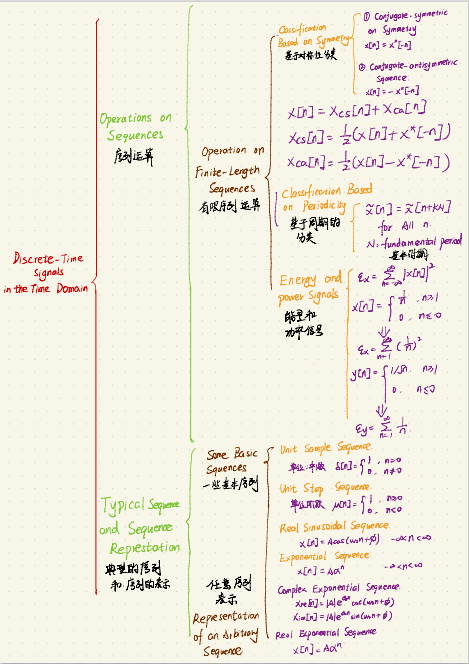 Discrete-Time
Signals
in the Time Domain
Operations on
Sequences
序列运算
Operation on
Finite-Length
Sequences
有限序列运算
Classification
Based on Symmetry
基于对称性分类
① Conjugate-symmetric
on Symmetry
x[n] = x*[-n]
② Conjugate-antisymmetric
Squence
x[n] = -x*[-n]
x[n] = xcs[n] + xca[n]
xcs[n] = 1/2 (x[n] + x*[-n])
xca[n] = 1/2 (x[n] - x*[-n])
Classification Based
on Periodicity
基于周期的
分类
x̃[n] = x̃[n+kN]
for All n.
N: fundamental period
基本周期
Energy and
power Signals
能量和
功率信号
εx = ∑ n=-∞ ∞ |x[n]|²
x[n] = { 1/n, n≥1
0, n≤0
⇓
εx = ∑ n=1 ∞ (1/n)²
y[n] = { 1/√n, n≥1
0, n≤0
⇓
εy = ∑ n=1 ∞ 1/n.
Typical Sequence
and Sequence
Represtation
典型的序列
和序列的表示
Some Basic
Squences
一些基本序列
Unit Sample Sequence.
δ[n] = { 1, n=0
0, n≠0
Unit Step Sequence.
单位阶跃 μ[n] = { 1, n≥0
0, n<0
Real Sinusoidal Sequence.
x[n] = Acos(ω₀n+ϕ) -∞<n<∞
Exponential Sequence.
x[n] = Aαⁿ -∞<n<∞
任意序列
表示
Representation
of an Arbitrary
Sequence
Complex Exponential Sequence.
xre[n] = |A|e^σ₀n cos(ω₀n+ϕ)
xim[n] = |A|e^σ₀n sin(ω₀n+ϕ)
Real Exponential Sequence
x[n] = Aαⁿ